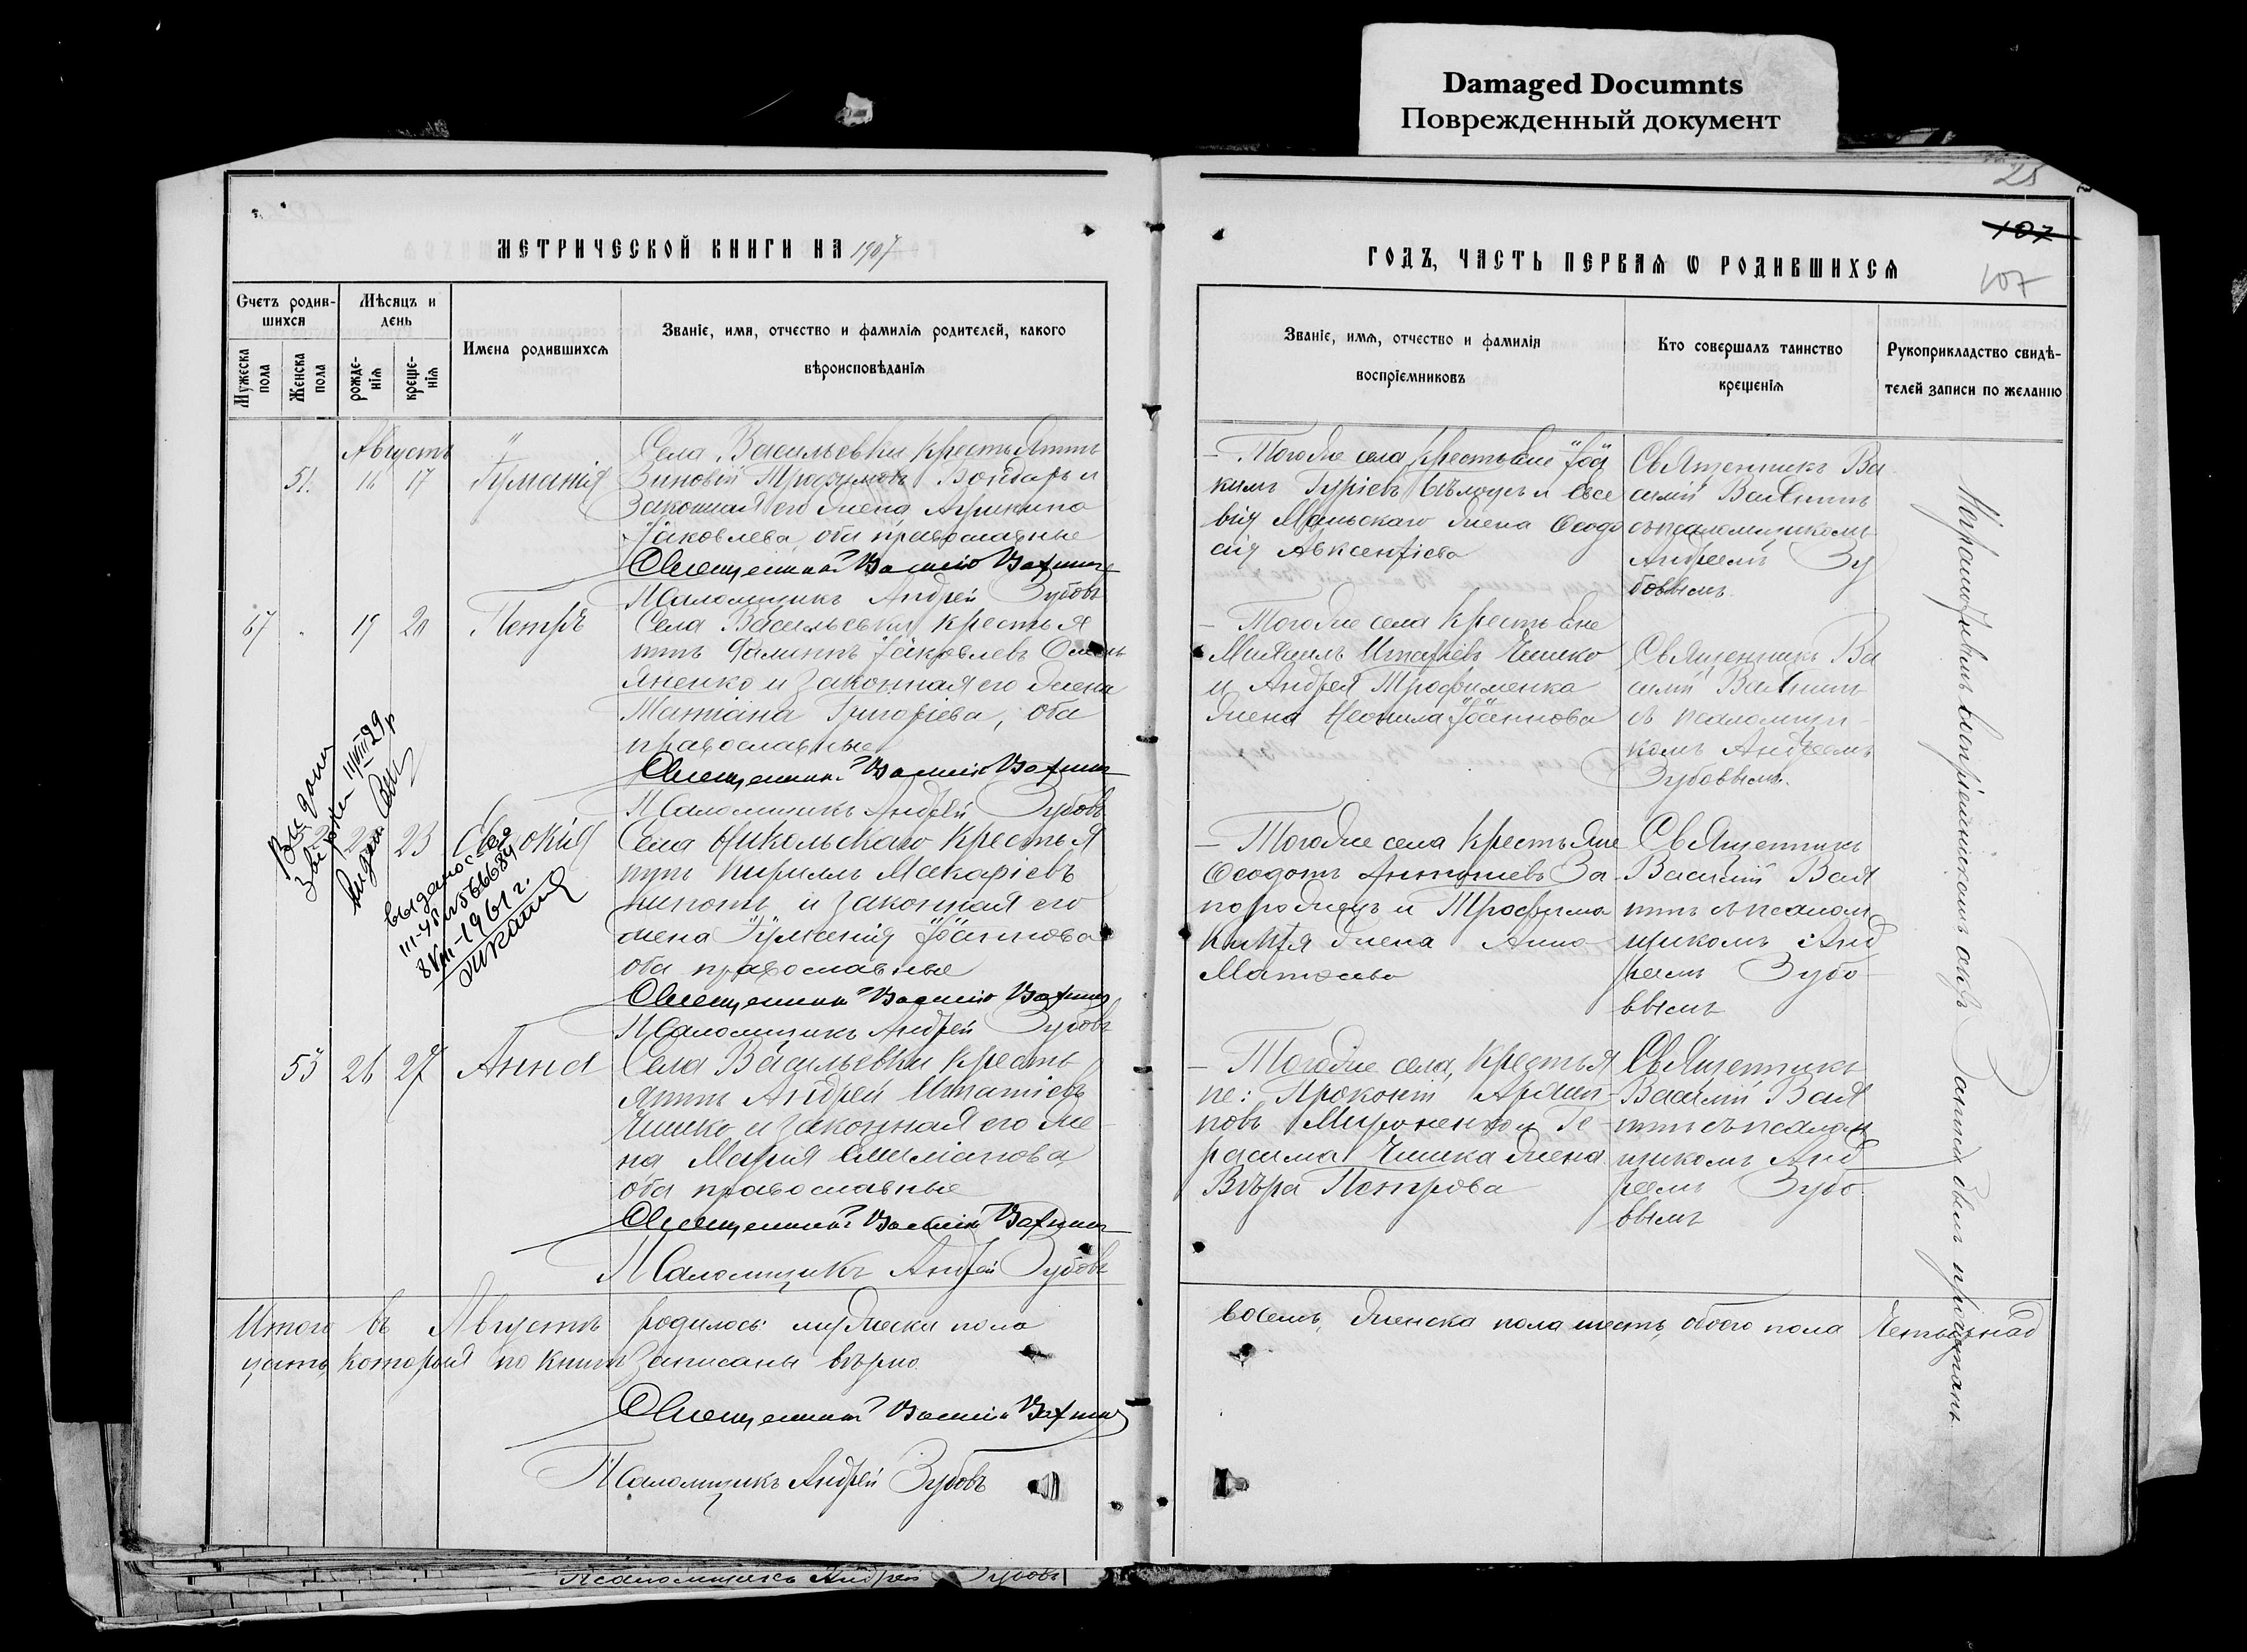 Damaged Documnts
Поврежденный документ
25
107
107
МЕТРИЧЕСКОЙ КНИГИ НА 1907
ГОДЪ, ЧАСТЬ ПЕРВАЯ Ѡ РОДИВШИХСЯ
Счетъ родив-
шихся
Мѣсяцъ и
день
Мужеска пола
Женска пола
рожде-
нія
креще-
нія
Имена родившихся
Званіе, имя, отчество и фамилія родителей, какого
вѣроисповѣданія
Званіе, имя, отчество и фамилія
воспріемниковъ
Кто совершалъ таинство
крещенія
Рукоприкладство свидѣ-
телей записи по желанію
Августъ
51. 16 17
Села Васильевки крестьянинъ
Зиновій Трофимовъ Бондарь и
законная его жена Агрипина
Іаковлева, оба православные
Священникъ Василій
Псаломщикъ Андрей Зубовъ
Тогоже села крестьяне Іоа
кимъ Гуріевъ Бѣлоусъ и Евсе
вія Маньскаго жена Ѳеодо
сія Авксентіева
Священникъ Ва
силій
съ псаломщикомъ
Андреемъ Зу
бовымъ
67 19 20 Петръ
Села Васильевки крестья
нинъ Іаковлевъ
яненко и законная его жена
Татіана Григоріева, оба
православные
Священникъ Василій
Псаломщикъ Андрей Зубовъ
Тогоже села крестьяне
Михаилъ Игнатіевъ Чишко
и Андрея Трофименка
жена Неонила Іоаннова
Священникъ Ва
силій
съ псаломщи
комъ Андреемъ
Зубовымъ.
Выдана
11/VIII 29 г
23 Евдокія
выдано св-во
III-УР №566684
8/VIII-1961 г.
Села Никольскаго крестья
нинъ Кириллъ Макаріевъ
и законная его
жена Іуліанія Іоаннова
оба православные
Священникъ Василій
Псаломщикъ Андрей Зубовъ
Тогоже села крестьяне
Ѳеодотъ Антоніевъ За
порожецъ и Трофима
жена Анна
Матѳеева
Священникъ
Василій
съ псалом
щикомъ Анд
реемъ Зубо
вымъ
53 26 27 Анна
Села Васильевки кресть
янинъ Андрей Игнатіевъ
Чишко и законная его же
на Марія Емиліанова,
оба православные
Священникъ Василій
Псаломщикъ Андрей Зубовъ
Тогоже села, крестья
не: Прокопій Архип
повъ Мироненко и Ге
расима Чишка жена
Вѣра Петрова
Священникъ
Василій
съ псалом
щикомъ Анд
реемъ Зубо
вымъ
Итого въ Августѣ родилось: мужеска пола
восемь, женска пола шесть, обоего пола четырнад
цать, которыя по книгѣ записаны вѣрно.
Священникъ Василій
Псаломщикъ Андрей Зубовъ
Псаломщикъ Андрей Зубовъ